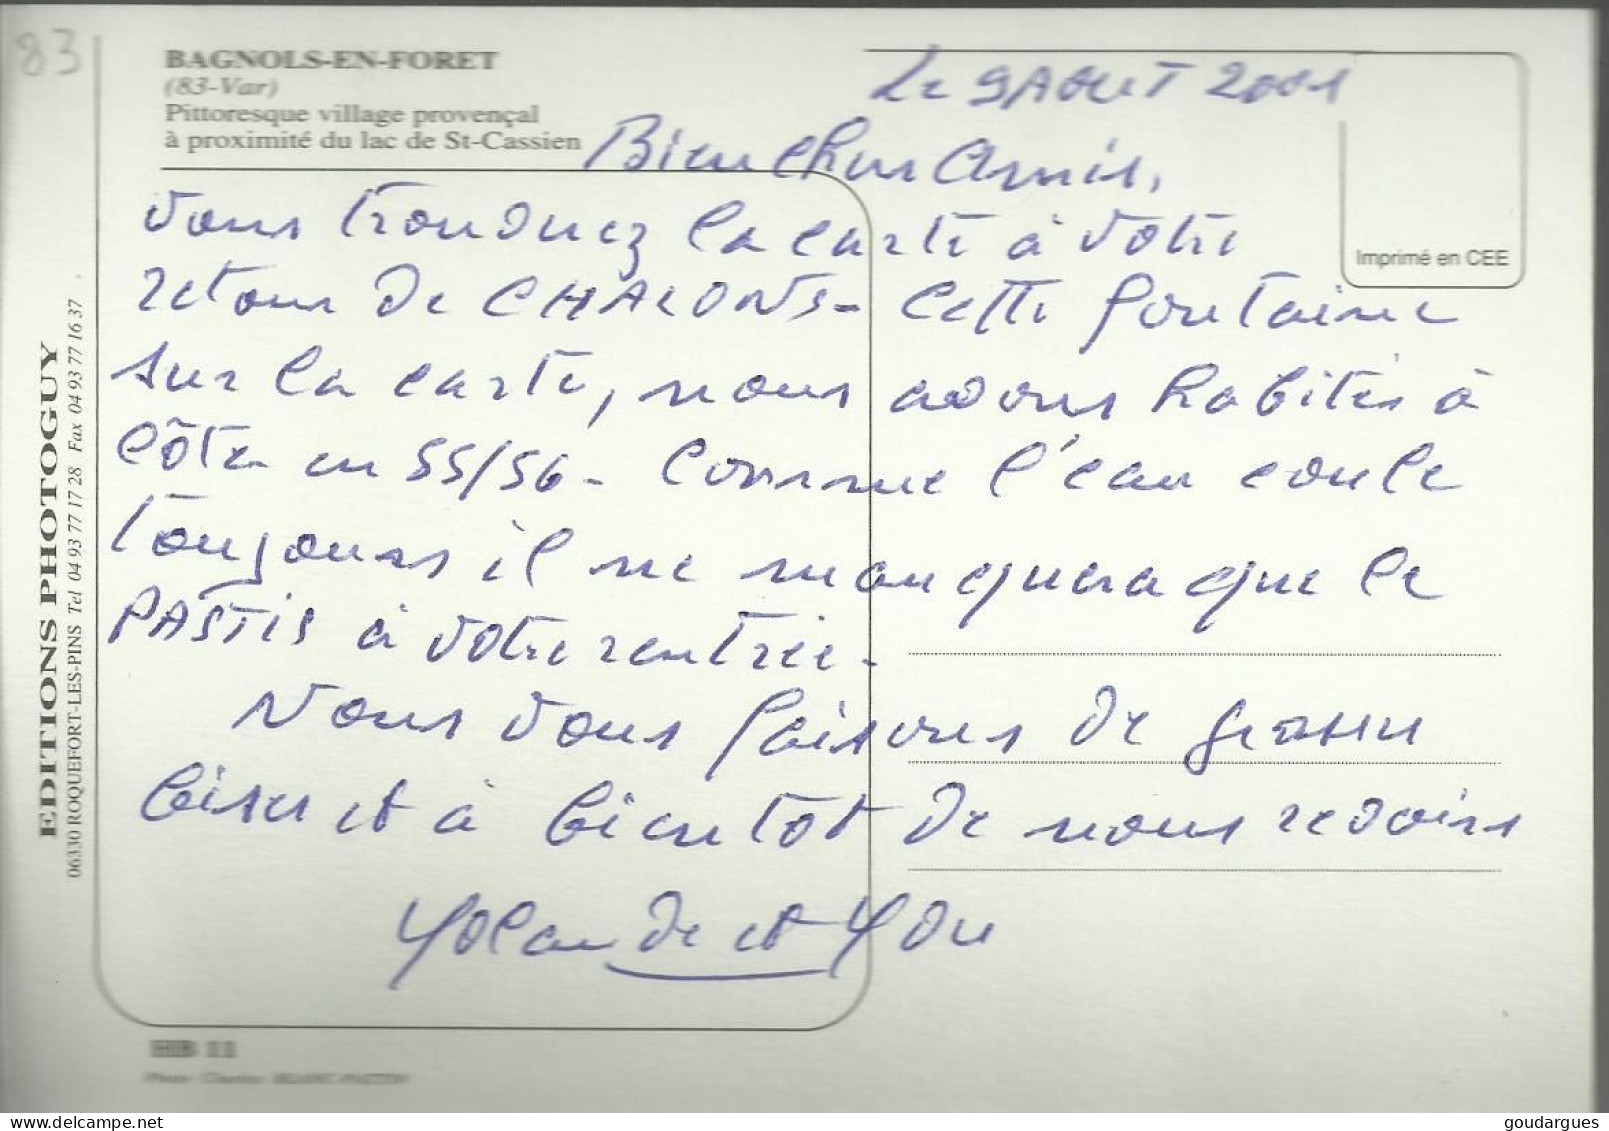 83
BAGNOLS-EN-FORET
(83-Var)
Pittoresque village provençal
à proximité du lac de St-Cassien
Imprimé en CEE
Le 9 AOUT 2001
Bien chers Amis,
vous trouverez la carte à votre
retour de CHALONS - Cette fontaine
sur la carte, nous avons habités à
côté en 55/56 - Comme l'eau coule
toujours il ne manquera que le
PASTIS à votre rentrée -
Nous vous faisons de grosses
bises et à bientôt de nous revoirs
Yolande et
EDITIONS PHOTOGUY
06330 ROQUEFORT-LES-PINS Tel 04 93 77 17 28 Fax 04 93 77 16 37
HB 11
goudargues